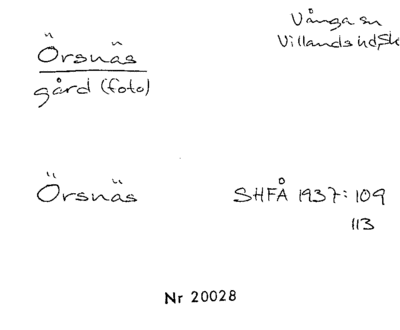 Örsnäs
gård (foto)
Vånga sn
Villands hd, Sk
Örsnäs
SHFÅ 1937: 109
113
Nr 20028